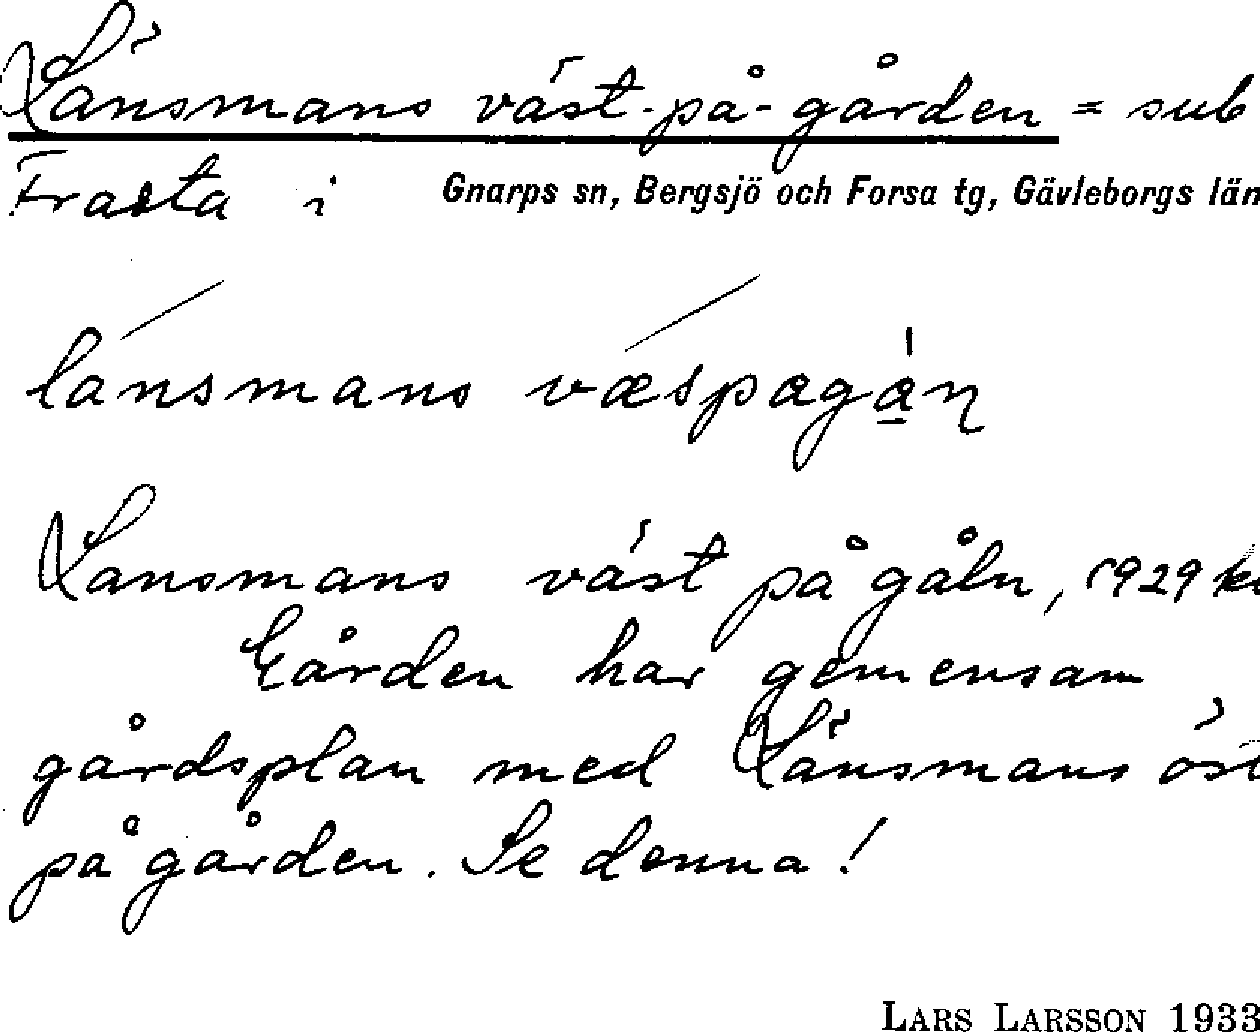 Länsmans väst-på-gården = sub
Frästa i Gnarps sn, Bergsjö och Forsa tg, Gävleborgs län
lánsmans væspagån
Länsmans väst på gåln, 1929
Gården har gemensam
gårdsplan med Länsmans öst
på gården. Se denna!
LARS LARSSON 1933